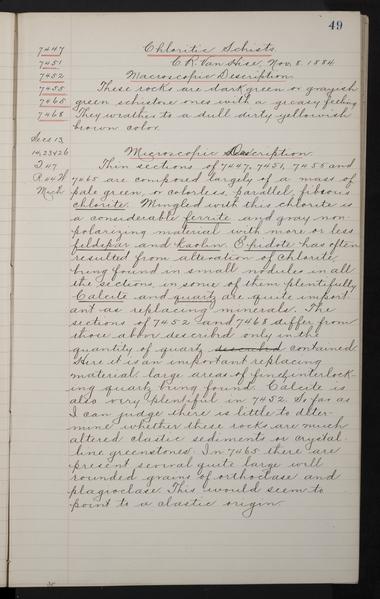 49
7447
7451
7452
7455
7465
7468
Secs 13,
14, 23 & 26
T 47
R 46 W
Mich.
Chloritic Schists.
C. R. Van Hise, Nov. 8. 1884
Macroscopic Description.
These rocks are dark green or grayish
green schistose ones with a greasy feeling.
They weather to a dull dirty yellowish
brown color.
Microscopic Description.
Thin sections of 7447, 7451, 7455 and
7465 are composed largely of a mass of
pale green, or colorless, parallel, fibrous
chlorite. Mingled with this chlorite is
a considerable ferrite and gray non-
polarizing material with more or less
feldspar and kaolin. Epidote has often
resulted from alteration of chlorite,
being found in small nodules in all
the sections, in some of them plentifully.
Calcite and quartz are quite import
ant as replacing minerals. The
sections of 7452 and 7468 differ from
those above described only in the
quantity of quartz contained.
Here it is an important replacing
material, large areas of finely interlock-
ing quartz being found. Calcite is
also very plentiful in 7452. So far as
I can judge there is little to deter-
mine whether these rocks are much
altered clastic sediments or crystal-
line greenstones. In 7465 there are
present several quite large well
rounded grains of orthoclase and
plagioclase. This would seem to
point to a clastic origin